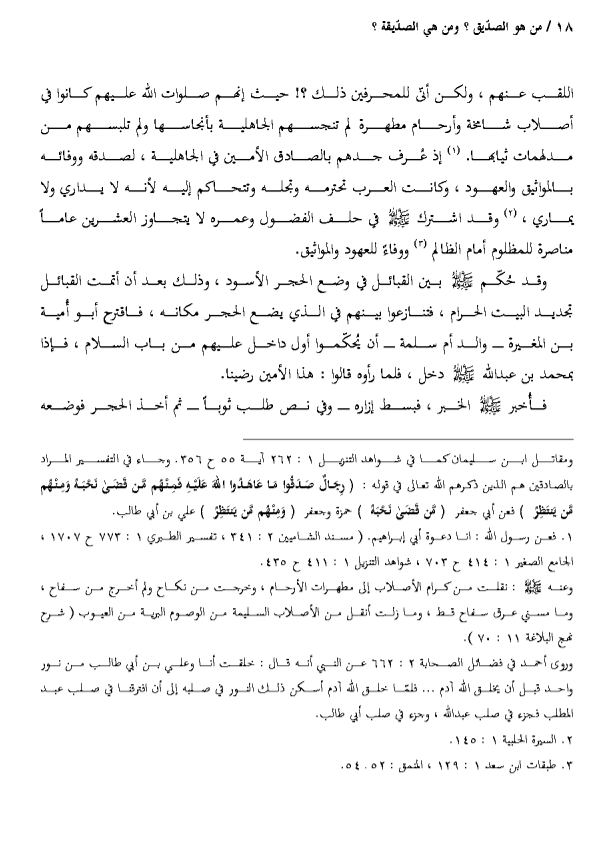 ١٨ / من هو الصدّيق ؟ ومن هي الصدّيقة ؟
اللقب عنهم ، ولكن أنّى للمحرفين ذلك ؟! حيث إنهم صلوات الله عليهم كانوا في
أصلاب شامخة وأرحام مطهرة لم تنجسهم الجاهلية بأنجاسها ولم تلبسهم من
مدلهمات ثيابها. (١) إذ عُرف جدهم بالصادق الأمين في الجاهلية ، لصدقه ووفائه
بالمواثيق والعهود ، وكانت العرب تحترمه وتجله وتتحاكم إليه لأنه لا يداري ولا
يماري ، (٢) وقد اشترك ﷺ في حلف الفضول وعمره لا يتجاوز العشرين عاماً
مناصرة للمظلوم أمام الظالم (٣) ووفاءً للعهود والمواثيق.
وقد حُكّم ﷺ بين القبائل في وضع الحجر الأسود ، وذلك بعد أن أتمت القبائل
تجديد البيت الحرام ، فتنازعوا بينهم في الذي يضع الحجر مكانه ، فاقترح أبو أُمية
بن المغيرة ـ والد أم سلمة ـ أن يُحكّموا أول داخل عليهم من باب السلام ، فإذا
بمحمد بن عبدالله ﷺ دخل ، فلما رأوه قالوا : هذا الأمين رضينا.
فأُخبر ﷺ الخبر ، فبسط إزاره ـ وفي نص طلب ثوباً ـ ثم أخذ الحجر فوضعه
ومقاتل ابن سليمان كما في شواهد التنزيل ١ : ٢٦٢ آية ٥٥ ح ٣٥٦. وجاء في التفسير المراد
بالصادقين هم الذين ذكرهم الله تعالى في قوله : ( رِجَالٌ صَدَقُوا مَا عَاهَدُوا اللهَ عَلَيْهِ فَمِنْهُم مَّن قَضَىٰ نَحْبَهُ وَمِنْهُم
مَّن يَنتَظِرُ ) فعن أبي جعفر ( مَّن قَضَىٰ نَحْبَهُ ) حمزة وجعفر ( وَمِنْهُم مَّن يَنتَظِرُ ) علي بن أبي طالب.
١. فعن رسول الله : انا دعوة أبي إبراهيم. ( مسند الشاميين ٢ : ٣٤١ ، تفسير الطبري ١ : ٧٧٣ ح ١٧٠٧ ،
الجامع الصغير ١ : ٤١٤ ح ٧٠٣ ، شواهد التنزيل ١ : ٤١١ ح ٤٣٥.
وعنه ﷺ : نقلت من كرام الأصلاب إلى مطهرات الأرحام ، وخرجت من نكاح ولم أخرج من سفاح ،
وما مسني عرق سفاح قط ، وما زلت أنقل من الأصلاب السليمة من الوصوم البرية من العيوب ( شرح
نهج البلاغة ١١ : ٧٠ ).
وروى أحمد في فضائل الصحابة ٢ : ٦٦٢ عن النبي أنه قال : خلقت أنا وعلي بن أبي طالب من نور
واحد قبل أن يخلق الله آدم ... فلمّا خلق الله آدم أسكن ذلك النور في صلبه إلى أن افترقنا في صلب عبد
المطلب فجزء في صلب عبدالله ، وجزء في صلب أبي طالب.
٢. السيرة الحلبية ١ : ١٤٥.
٣. طبقات ابن سعد ١ : ١٢٩ ، المنمق : ٥٢ ـ ٥٤.